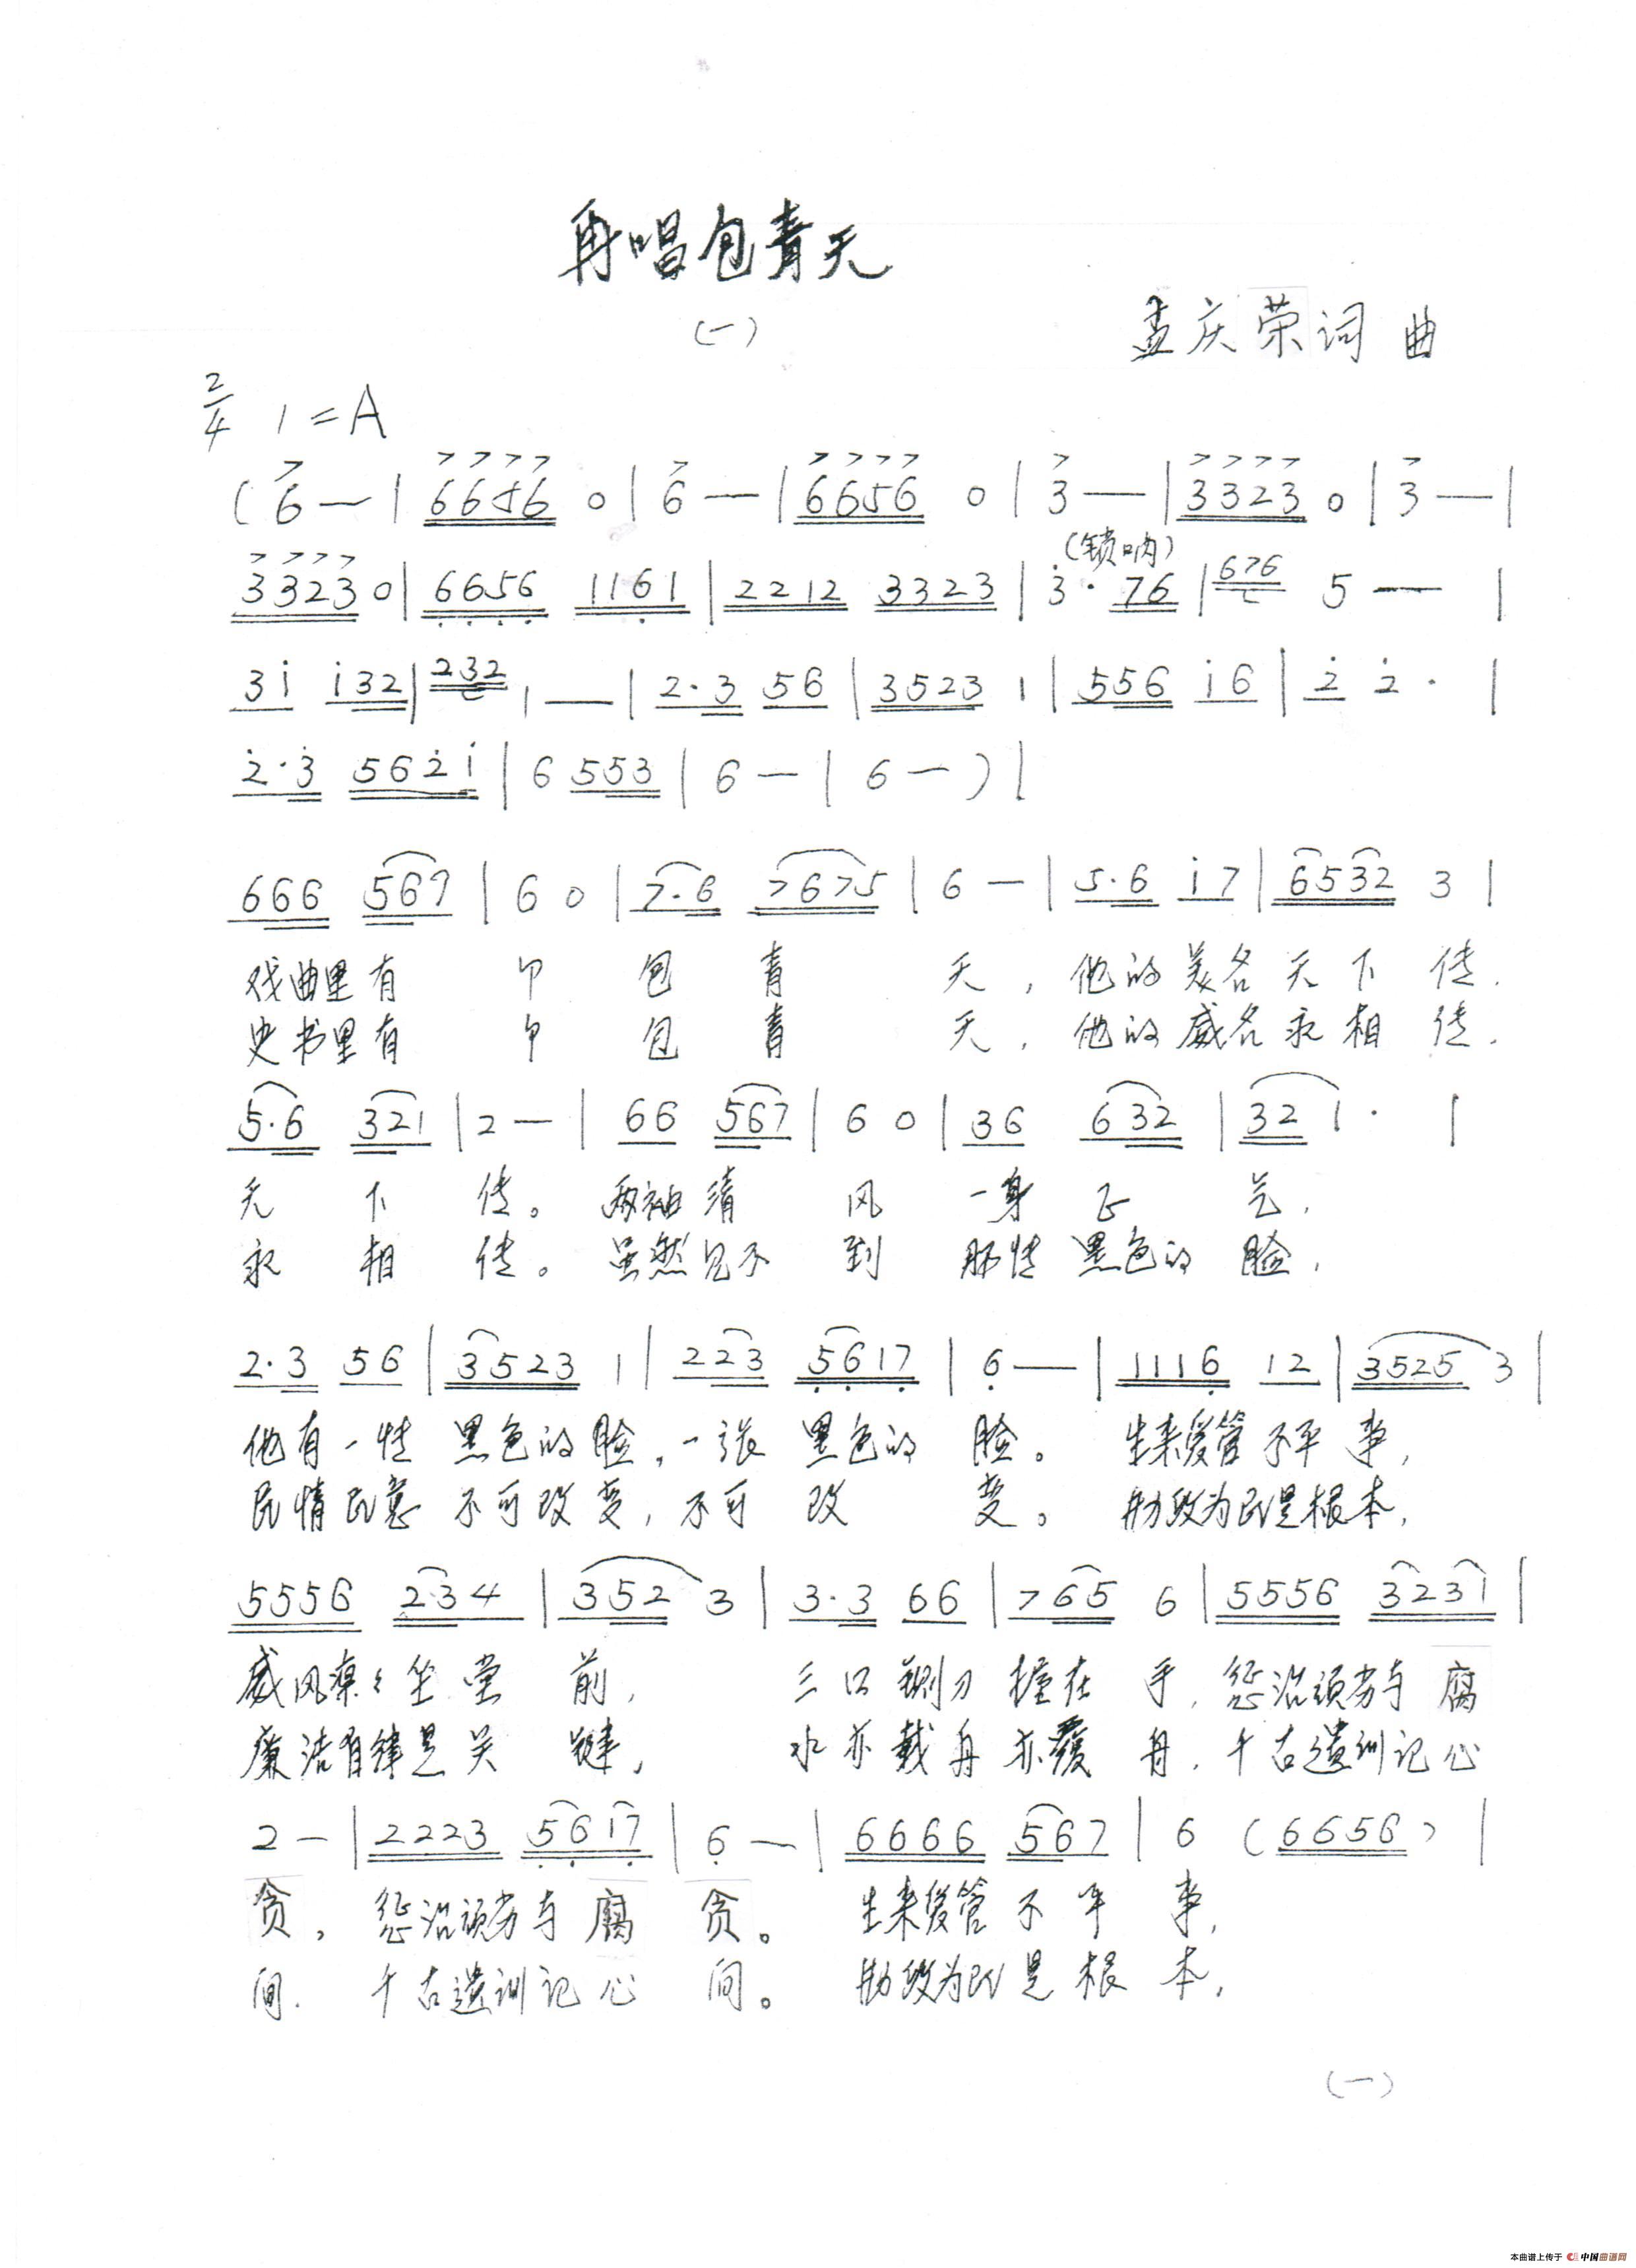 再唱包青天
(一)
孟庆荣词曲
2/4 1=A
(6 — | 6656 0 | 6 — | 6656 0 | 3 — | 3323 0 | 3 — |
(锁呐)
3323 0 | 6656 1161 | 2212 3323 | 3· 76 | 676 5 — |
3i i32 | 232 1 — | 2·3 56 | 3523 1 | 556 i6 | 2 2· |
2·3 562i | 6 553 | 6 — | 6 — ) |
666 567 | 6 0 | 7·6 7675 | 6 — | 5·6 i7 | 6532 3 |
戏曲里有 个 包 青 天, 他的美名天下传.
史书里有 个 包 青 天, 他的威名永相传.
5·6 321 | 2 — | 66 567 | 6 0 | 36 632 | 32 1· |
天 下 传。 两袖清 风 一身正 气,
永 相 传。 虽然见不 到 那张黑色的脸,
2·3 56 | 3523 1 | 223 5617 | 6 — | 1116 12 | 3525 3 |
他有一张黑色的脸, 一张黑色的脸。 生来爱管不平事,
民情民意不可改变, 不可改 变。 勤政为民是根本,
5556 2·34 | 352 3 | 3·3 66 | 765 6 | 5556 3231 |
威风凛々坐堂前, 三口铡刀握在手, 惩治顽劣与腐
廉洁自律是关键, 水亦载舟亦覆舟, 千古遗训记心
2 — | 2223 5617 | 6 — | 6666 567 | 6 (6656) |
贪, 惩治顽劣与腐贪。 生来爱管不平事,
间. 千古遗训记心间。 勤政为民是根本,
(一)
本曲谱上传于 中国曲谱网